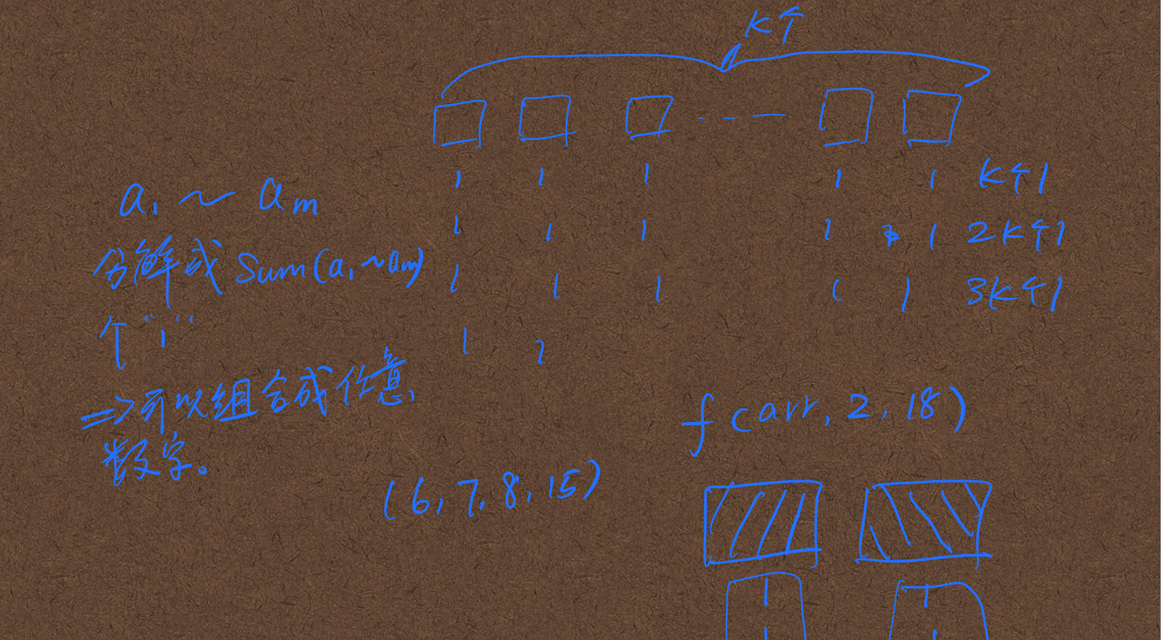 K个
1 1 1 1 1 K个1
1 1 1 1 1 2K个1
1 1 1 1 1 3K个1
1 1
a₁ ~ aₘ
分解成 Sum(a₁~aₘ)
个"1"
=>可以组合成任意
数字。
f(arr, 2, 18)
(6, 7, 8, 15)
1 1